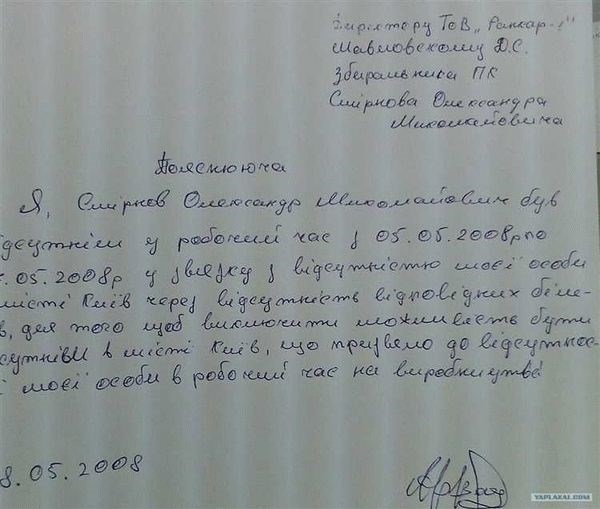 Директору ТоВ „Ранкар-
Шавловскому Д.С.
Збиральника ПК
Смірнова Олександра
Миколайовича
Пояснююча
Я, Смірнов Олександр Миколайович був
ідсутнім у робочий час з 05.05.2008р по
.05.2008р у звязку з відсутністю моєї особи
місті Київ через відсутність відповідних біле-
в, для того щоб виключити можливість бути
сутнім в місті Київ, що призвело до відсутнос-
і моєї особи в робочий час на виробництві
8.05.2008
YAPLAKAL.COM